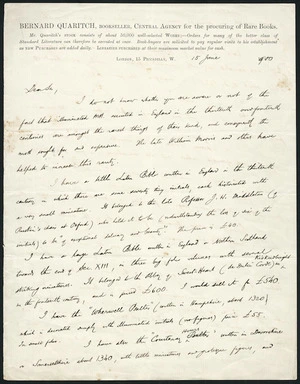 BERNARD QUARITCH, BOOKSELLER, CENTRAL AGENCY for the procuring of Rare Books.
Mr. Quaritch's STOCK consists of about 50,000 well-selected WORKS:—Orders for many of the better class of
Standard Literature can therefore be executed at once. Book-buyers are solicited to pay regular visits to his establishment
as NEW PURCHASES are added daily. LIBRARIES PURCHASED at their maximum market value for cash.
LONDON, 15 PICCADILLY, W. 15 June 1900
Dear Sir,
I do not know whether you are aware or not of the
fact that illuminated MSS executed in England in the thirteenth and fourteenth
centuries are amongst the rarest things of their kind, and consequently the
most sought for and expensive. The late William Morris and others have
helped to convert this rarity.
I have a little Latin Bible written in England in the thirteenth
century, in which there are some seventy tiny initials, each historiated with
a very small miniature. It belonged to the late Professor J. H. Middleton (of
Ruskin's chair at Oxford) who held it to be (notwithstanding the loss of one of the
initials) to be "of exceptional delicacy and beauty". The price is £40.
I have a large Latin Bible written in England or Northern Scotland
towards the end of Sec. XIII, in three big folio volumes with several
striking miniatures. It belonged to the Abbey of Sweet Heart (de Dulci Corde) in Kirkcudbright
in the fourteenth century, and is priced £400. I could sell it for £340
I have the Wherwell Psalter (written in Hampshire about 1320)
which is decorated simply with illuminated initials (no figures) price £55.
I have also the Courtenay Horae written in Devonshire
or Somersetshire about 1340, with little miniatures and grotesque figures, and